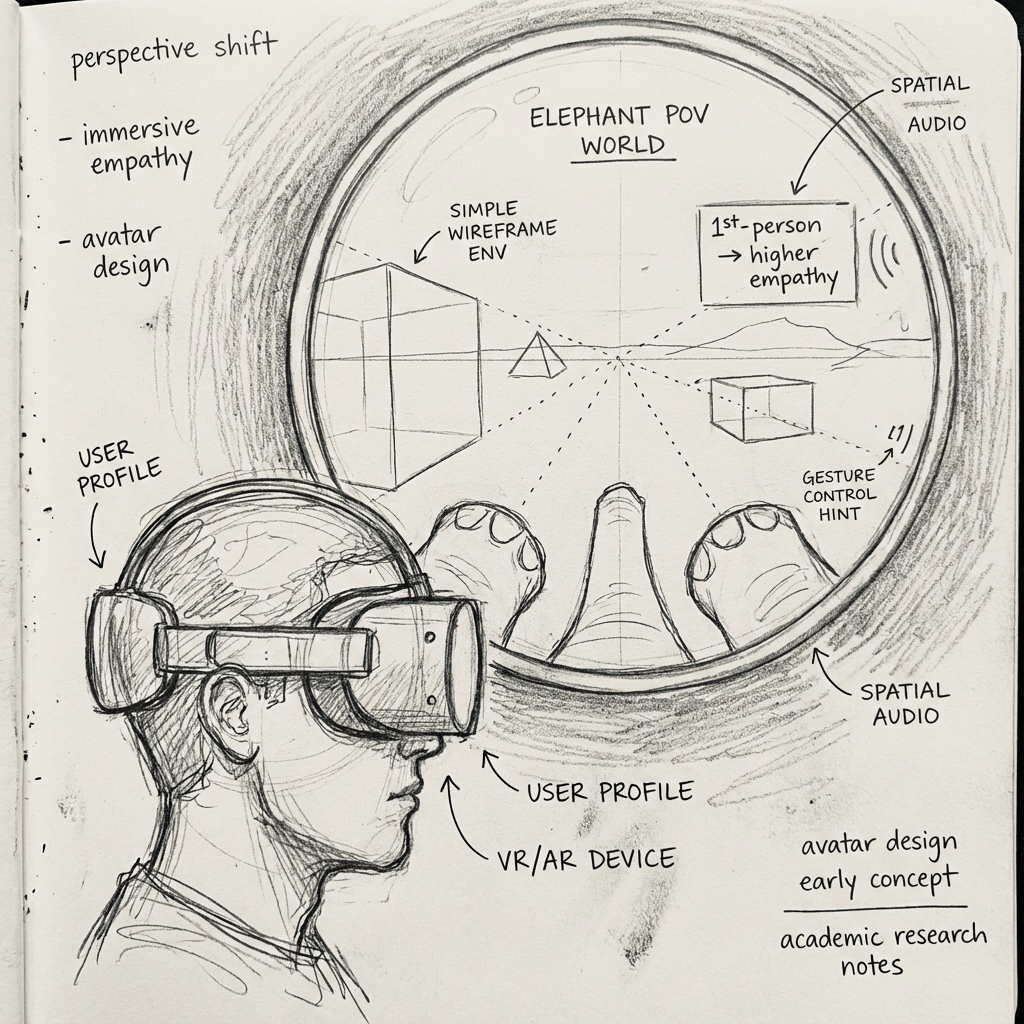 perspective shift
- immersive
empathy
- avatar
design
ELEPHANT POV
WORLD
SPATIAL
AUDIO
SIMPLE
WIREFRAME
ENV
1st-person
→ higher
empathy
GESTURE
CONTROL
HINT
USER
PROFILE
SPATIAL
AUDIO
USER PROFILE
VR/AR DEVICE
avatar design
early concept
academic research
notes